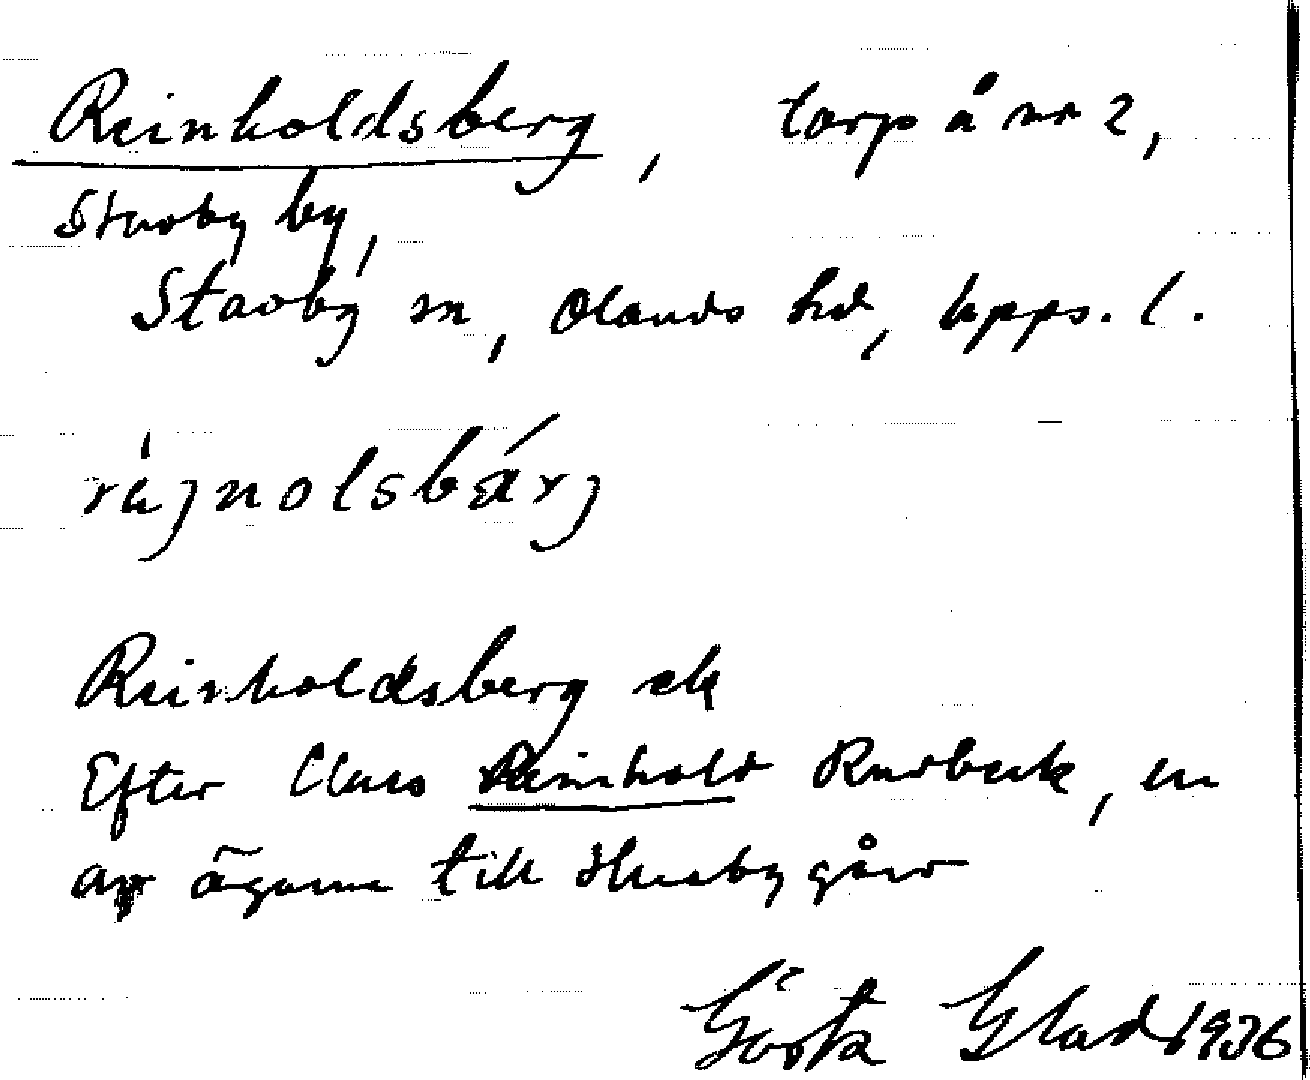 Reinholdsberg, torp å nr 2,
Stavby by,
Stavby sn, Olands hd, Upps. l.
räjnolsbärj
Reinholdsberg ek
Efter Claes Reinhold Rudbeck, en
av ägarna till Husby gård
Gösta Glad 1936